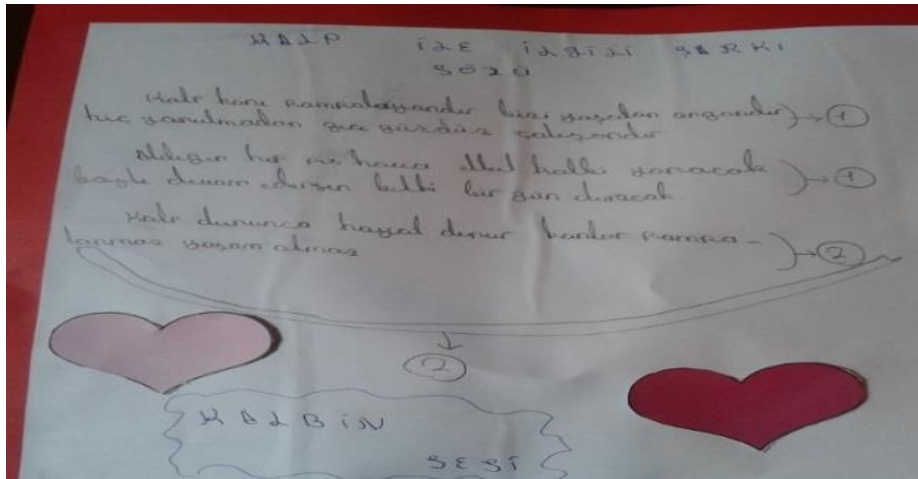 KALP İLE İLGİLİ ŞARKI
SÖZÜ
Kalp kanı pompalayandır bizi yaşatan organdır → 1
hiç yorulmadan gece gündüz çalışandır
her sigara kalbi yoracak → 1
böyle devam edersen belki bir gün duracak
Kalp durunca hayat durur kanlar pompa- → 2
lanmaz yaşam olmaz
2
KALBİN
SESİ